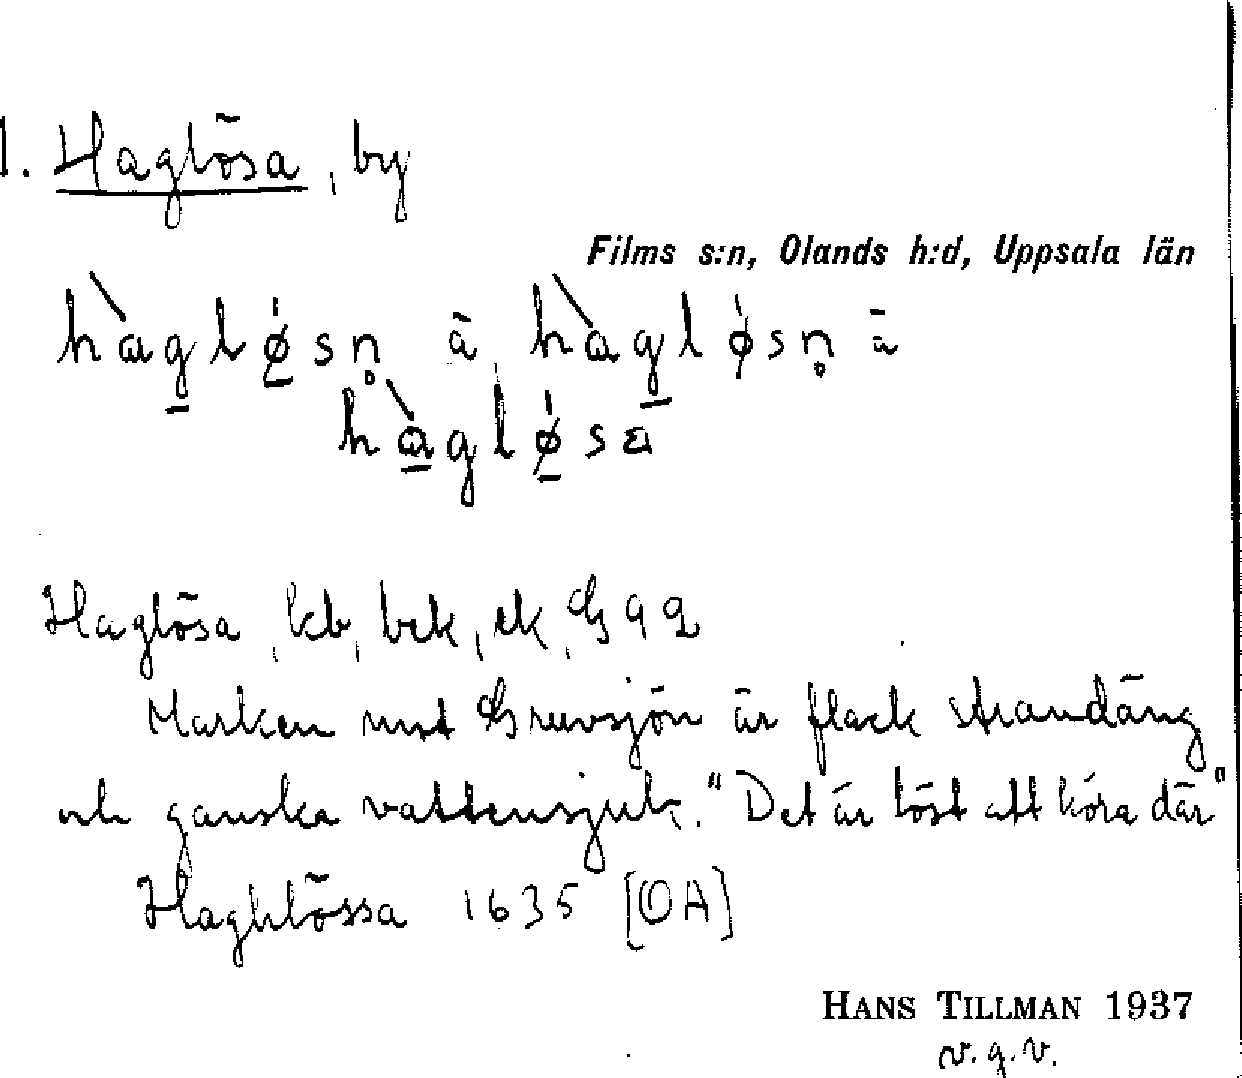 1. Haglösa, by
Films s:n, Olands h:d, Uppsala län
hàgløsn̥ ä, hàgløsn̥ ä
hàgløsa
Haglösa, kb, bek, ek, G 92
Marken mot Gruvsjön är flack strandäng
och ganska vattensjuk. "Det är löst att köra där"
Haghlössa 1635 [OA]
HANS TILLMAN 1937
v.g.v.